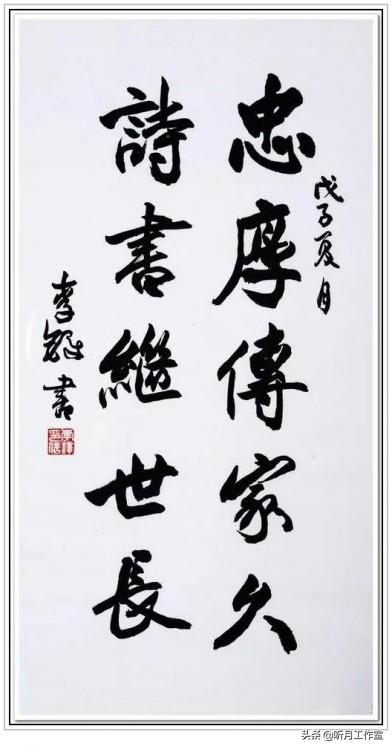 戊子夏月
忠厚傳家久
詩書繼世長
李
書
头条 @听月工作室